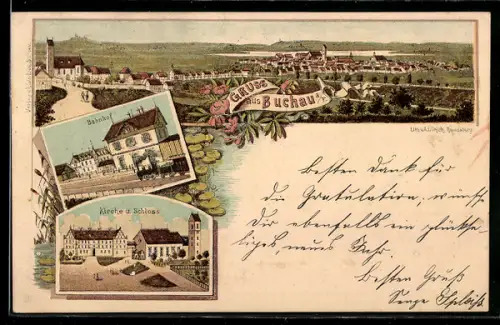 Gruss
aus Buchau a/F.
Bahnhof
Kirche u. Schloss
Besten Dank für
die Gratulation, wünsche
Dir ebenfalls ein glückse-
liges, neues Jahr.
Besten Gruß